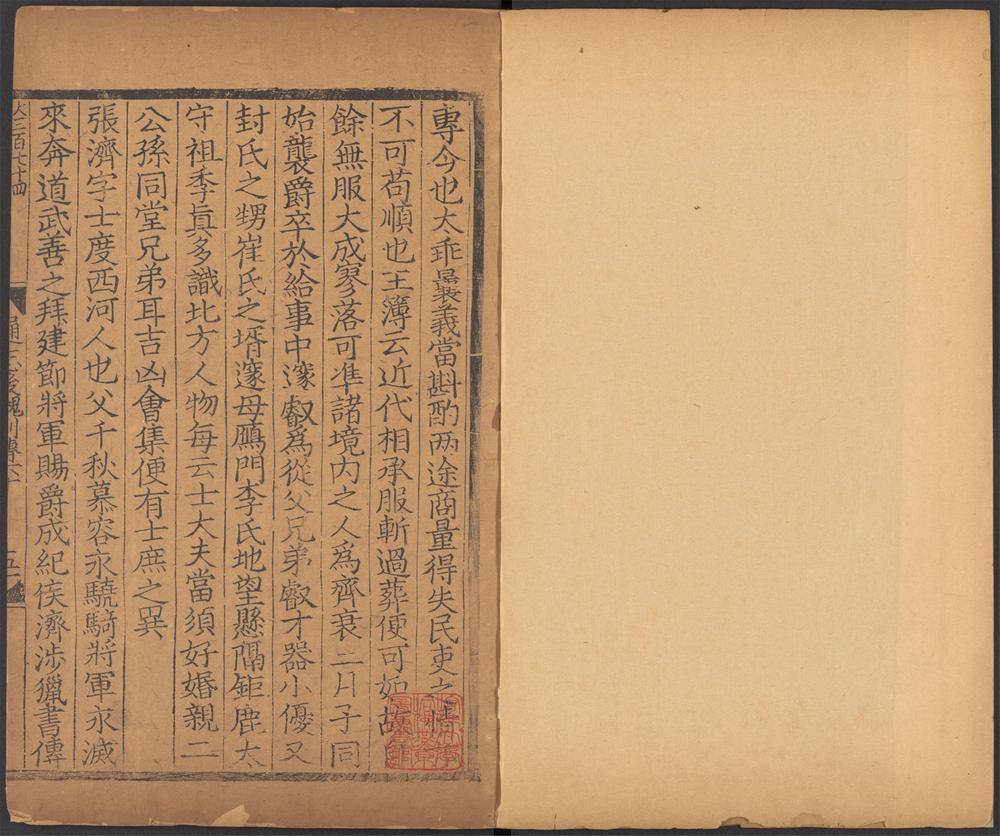 專今也太乖曩義當斟酌兩途商量得失民吏之情
不可苟順也主簿云近代相承服斬過葬便可如故
餘無服大成寥落可準諸境内之人爲齊衰二月子同
始襲爵卒於給事中邃叡爲從父兄弟叡才器小優又
封氏之甥崔氏之壻邃母鴈門李氏地望懸隔鉅鹿太
守祖季眞多識北方人物每云士大夫當須好婚親二
公孫同堂兄弟耳吉凶會集便有士庶之異
張濟字士度西河人也父千秋慕容永驍騎將軍永滅
來奔道武善之拜建節將軍賜爵成紀侯濟涉獵書傳
大三百七十四
通志後魏列傳六
五一